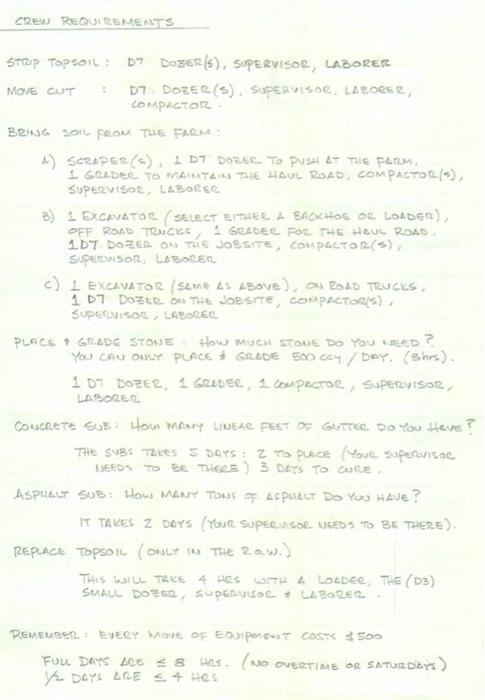 CREW REQUIREMENTS
STRIP TOPSOIL : D7 DOZER(S), SUPERVISOR, LABORER
MOVE CUT : D7 DOZER(S), SUPERVISOR, LABORER,
COMPACTOR.
BRING SOIL FROM THE FARM:
A) SCRAPER(S), 1 D7 DOZER TO PUSH AT THE FARM,
1 GRADER TO MAINTAIN THE HAUL ROAD, COMPACTOR(S),
SUPERVISOR, LABORER
B) 1 EXCAVATOR (SELECT EITHER A BACKHOE OR LOADER),
OFF ROAD TRUCKS, 1 GRADER FOR THE HAUL ROAD,
1 D7 DOZER ON THE JOBSITE, COMPACTOR(S),
SUPERVISOR, LABORER
C) 1 EXCAVATOR (SAME AS ABOVE), ON ROAD TRUCKS,
1 D7 DOZER ON THE JOBSITE, COMPACTOR(S),
SUPERVISOR, LABORER
PLACE & GRADE STONE: HOW MUCH STONE DO YOU NEED?
YOU CAN ONLY PLACE & GRADE 500 CCY / DAY. (8hrs).
1 D7 DOZER, 1 GRADER, 1 COMPACTOR, SUPERVISOR,
LABORER
CONCRETE SUB: HOW MANY LINEAR FEET OF GUTTER DO YOU HAVE?
THE SUBS TAKES 5 DAYS: 2 TO PLACE (YOUR SUPERVISOR
NEEDS TO BE THERE) 3 DAYS TO CURE.
ASPHALT SUB: HOW MANY TONS OF ASPHALT DO YOU HAVE?
IT TAKES 2 DAYS (YOUR SUPERVISOR NEEDS TO BE THERE).
REPLACE TOPSOIL (ONLY IN THE R.O.W.)
THIS WILL TAKE 4 HRS WITH A LOADER, THE (D3)
SMALL DOZER, SUPERVISOR & LABORER.
REMEMBER: EVERY MOVE OF EQUIPMENT COSTS $500
FULL DAYS ARE ≤ 8 HRS. (NO OVERTIME OR SATURDAYS)
1/2 DAYS ARE ≤ 4 HRS